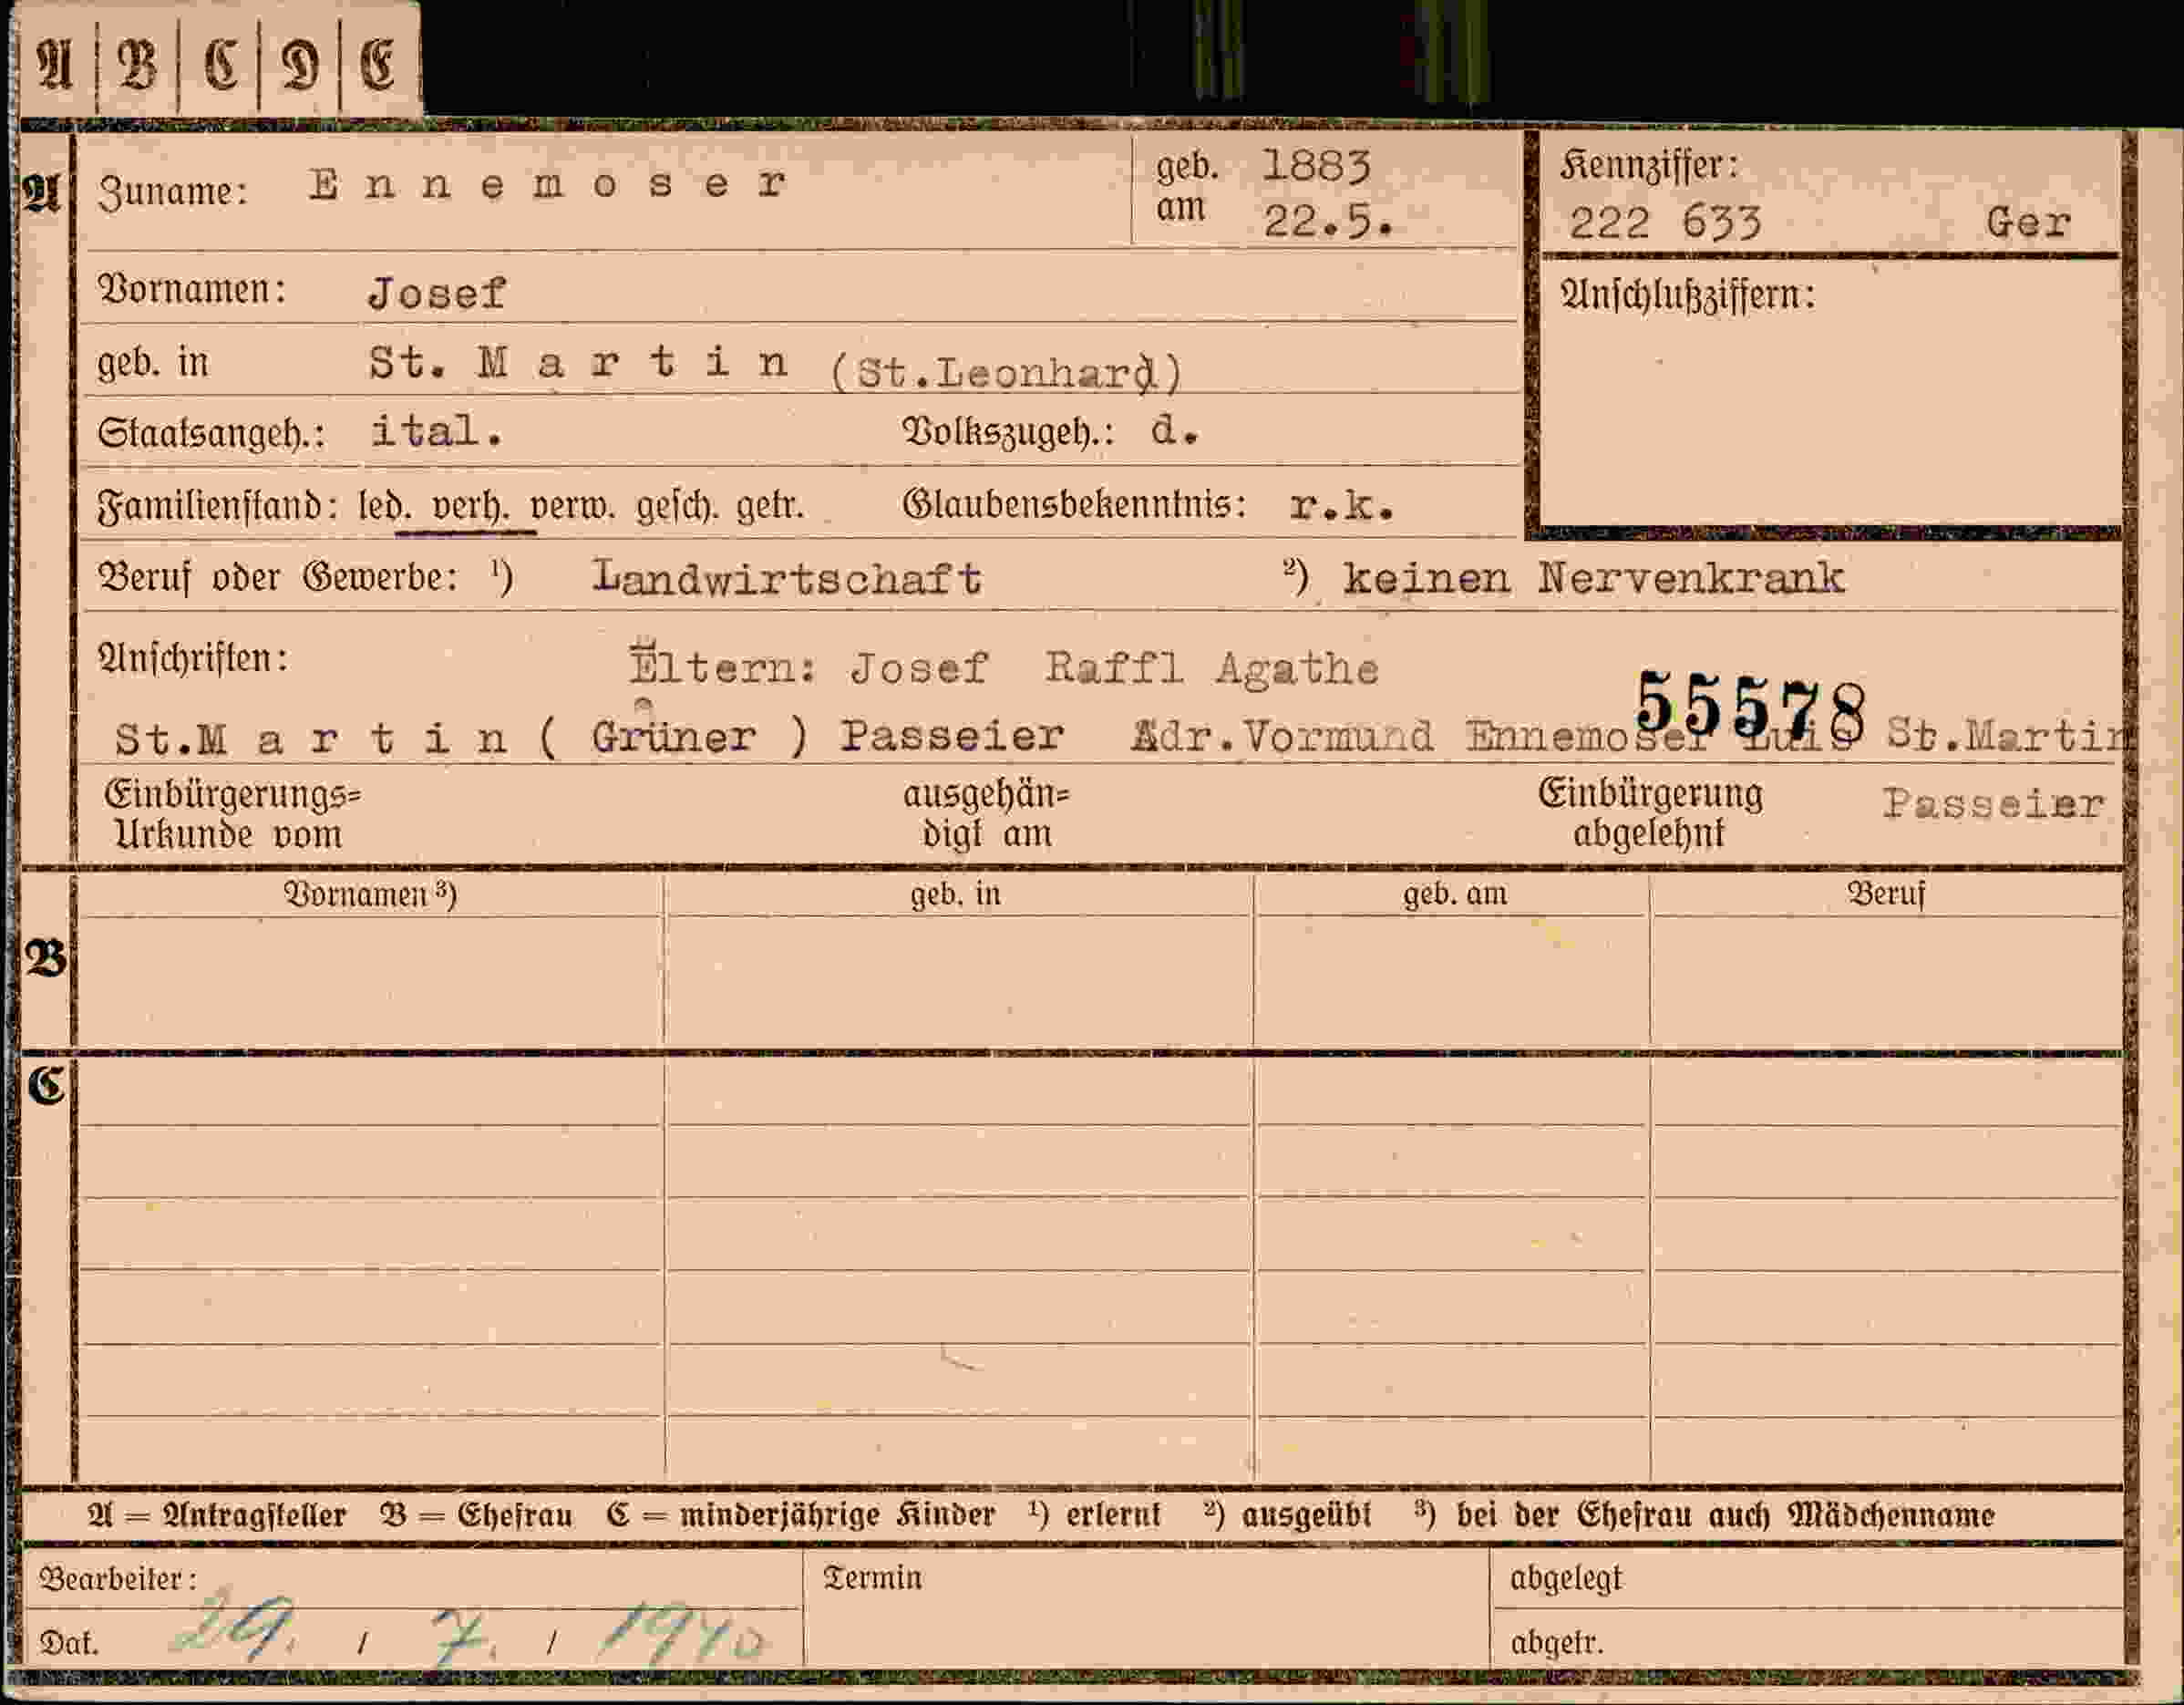 A | B | C | D | E
A Zuname: E n n e m o s e r geb. am 1883 22.5. Kennziffer:
222 633 Ger
Vornamen: Josef Anschlußziffern:
geb. in St. M a r t i n (St.Leonhard)
Staatsangeh.: ital. Volkszugeh.: d.
Familienstand: led. verh. verw. gesch. getr. Glaubensbekenntnis: r.k.
Beruf oder Gewerbe: ¹) Landwirtschaft ²) keinen Nervenkrank
Anschriften: Eltern: Josef Raffl Agathe
55578
St.M a r t i n ( Grüner ) Passeier Adr.Vormund Ennemoser Luis St.Martin
Passeier
Einbürgerungs=
Urkunde vom
ausgehän=
digt am
Einbürgerung
abgelehnt
Vornamen ³) geb. in geb. am Beruf
B
C
A = Antragsteller B = Ehefrau C = minderjährige Kinder ¹) erlernt ²) ausgeübt ³) bei der Ehefrau auch Mädchenname
Bearbeiter: Termin abgelegt
Dat. 29. / 7. / 1940 abgetr.